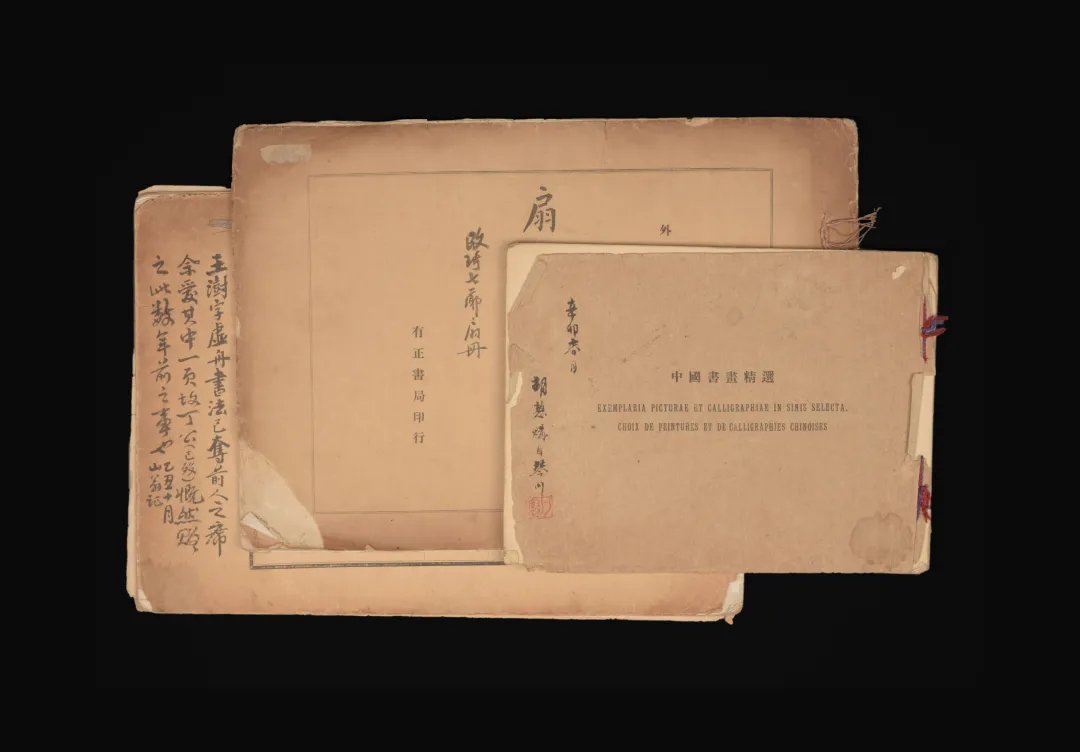 王澍字虚舟書法已奪前人之席
余愛其中一頁故丁公(已故)慨然贈
之此数年前之事也
乙丑十月
山翁记
扇
外
改琦七薌扇册
有正書局印行
辛卯春月
胡蔥購自琴川
中國書畫精選
EXEMPLARIA PICTURAE ET CALLIGRAPHIAE IN SINIS SELECTA.
CHOIX DE PEINTURES ET DE CALLIGRAPHIES CHINOISES